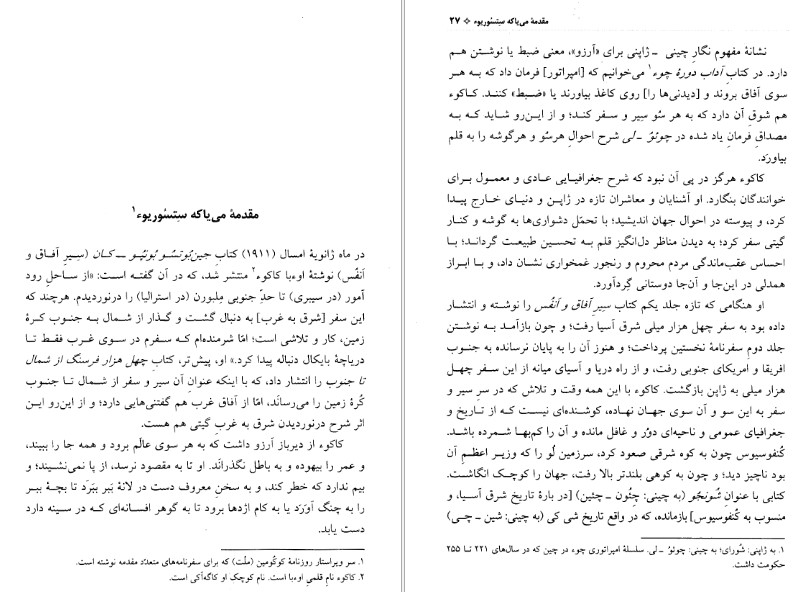 مقدمهٔ می‌یاکه سیتسوریوء۱
در ماه ژانویهٔ امسال (۱۹۱۱) کتابِ جین‌بُوتسو بُونیُو ــ کان (سِیرِ آفاق و
اَنفُس) نوشتهٔ اوءبا کاکوء۲ منتشر شد، که در آن گفته است: «از ساحلِ رود
آمور (در سیبری) تا حدِّ جنوبی مِلبورن (در استرالیا) را درنوردیدم. هرچند که
این سفر [شرق به غرب] به دنبال گشت و گذار از شمال به جنوب کرهٔ
زمین، کار و تلاشی است؛ امّا شرمنده‌ام که سفرم در سوی غرب فقط تا
دریاچهٔ بایکال دنباله پیدا کرد.» او، پیش‌تر، کتابِ چهل هزار فرسنگ از شمال
تا جنوب را انتشار داد، که با اینکه عنوانِ آن سیر و سفر از شمال تا جنوب
کُرهٔ زمین را می‌رسانَد، امّا از آفاق غرب هم گفتنی‌هایی دارد؛ و از این‌رو این
اثر شرح درنوردیدن شرق به غربِ گیتی هم هست.
کاکوء از دیرباز آرزو داشت که به هر سوی عالَم برود و همه جا را ببیند،
و عمر را بیهوده و به باطل نگذرانَد. او تا به مقصود نرسد، از پا نمی‌نشیند؛ و
بیم ندارد که خطر کند، و به سخنِ معروف دست در لانهٔ ببَر ببَرَد تا بچهٔ ببر
را به چنگ آوَرَد یا به کام اژدها برود تا به گوهر افسانه‌ای که در سینه دارد
دست یابد.
۱. سر ویراستار روزنامهٔ کوکُومین (ملّت) که برای سفرنامه‌های متعدّد مقدمه نوشته است.
۲. کاکوء نامِ قلمیِ اوءبا است. نام کوچک او کاگه‌آکی است.
مقدمهٔ می‌یاکه سیتسوریوء ❖ ۲۷
نشانهٔ مفهوم نگارِ چینی ــ ژاپنی برای «آرزو»، معنی ضبط یا نوشتن هم
دارد. در کتابِ آداب دورهٔ چوء۱ می‌خوانیم که [امپراتور] فرمان داد که به هر
سوی آفاق بروند و [دیدنی‌ها را] روی کاغذ بیاورند یا «ضبط» کنند. کاکوء
هم شوقِ آن دارد که به هر سُو سِیر و سفر کند؛ و از این‌رو شاید که به
مصداقِ فرمانِ یاد شده در چوئوُ ــ لی شرح احوالِ هرسُو و هرگوشه را به قلم
بیاورَد.
کاکوء هرگز در پی آن نبود که شرح جغرافیایی عادی و معمول برای
خوانندگان بنگارد. او آشنایان و معاشران تازه در ژاپن و دنیای خارج پیدا
کرد، و پیوسته در احوال جهان اندیشید؛ با تحمّل دشواری‌ها به گوشه و کنار
گیتی سفر کرد؛ به دیدن مناظر دل‌انگیز قلم به تحسین طبیعت گردانَد؛ با
احساس عقب‌ماندگی مردم محروم و رنجور غمخواری نشان داد، و با ابراز
همدلی در این‌جا و آن‌جا دوستانی گِردآورد.
او هنگامی که تازه جلد یکم کتاب سیرِ آفاق و اَنفُس را نوشته و انتشار
داده بود به سفر چهل هزار میلی شرق آسیا رفت؛ و چون بازآمد به نوشتن
جلد دومِ سفرنامهٔ نخستین پرداخت؛ و هنوز آن را به پایان نرسانده به جنوب
افریقا و امریکای جنوبی رفت، و از راه دریا و آسیای میانه از این سفر چهل
هزار میلی به ژاپن بازگشت. کاکوء با این همه وقت و تلاش که در سرِ سیر و
سفر به این سو و آن سوی جهان نهاده، کوشنده‌ای نیست که از تاریخ و
جغرافیای عمومی و ناحیه‌ای دوْر و غافل مانده و آن را کم‌بها شمرده باشد.
کُنفوسیوس چون به کوه شرقی صعود کرد، سرزمین لُو را که وزیر اعظمِ آن
بود ناچیز دید؛ و چون به کوهی بلندتر بالا رفت، جهان را کوچک انگاشت.
کتابی با عنوانِ شُونجُو (به چینی: چئُون ــ چئین) [در بارهٔ تاریخ شرق آسیا، و
منسوب به کُنفوسیوس] بازمانده، که در واقع تاریخ شی کی (به چینی: شین ــ چی)
۱. به ژاپنی: شُورای؛ به چینی: چوئوُ ــ لی. سلسلهٔ امپراتوری چوء در چین که در سال‌های ۲۲۱ تا ۲۵۵
حکومت داشت.